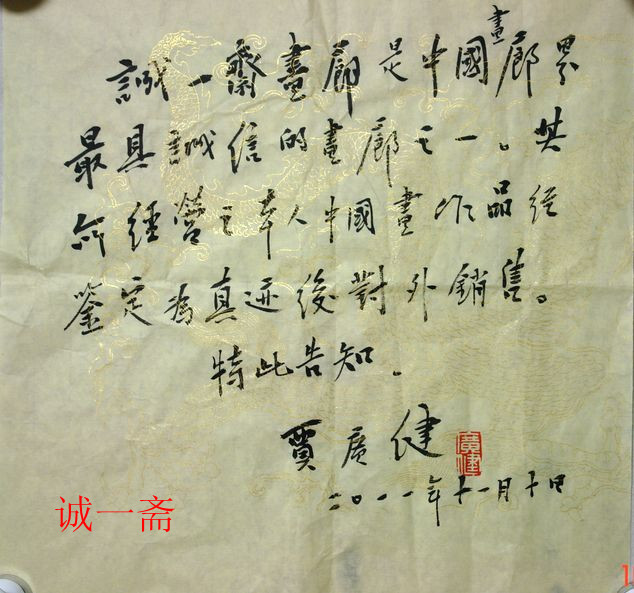 誠一齋畫廊是中國畫廊界
最具誠信的畫廊之一。其
所經營之本人中國畫作品经
鉴定為真迹後對外銷售。
特此告知.
賈廣健
廣健
二〇一一年十一月十日
诚一斋
1